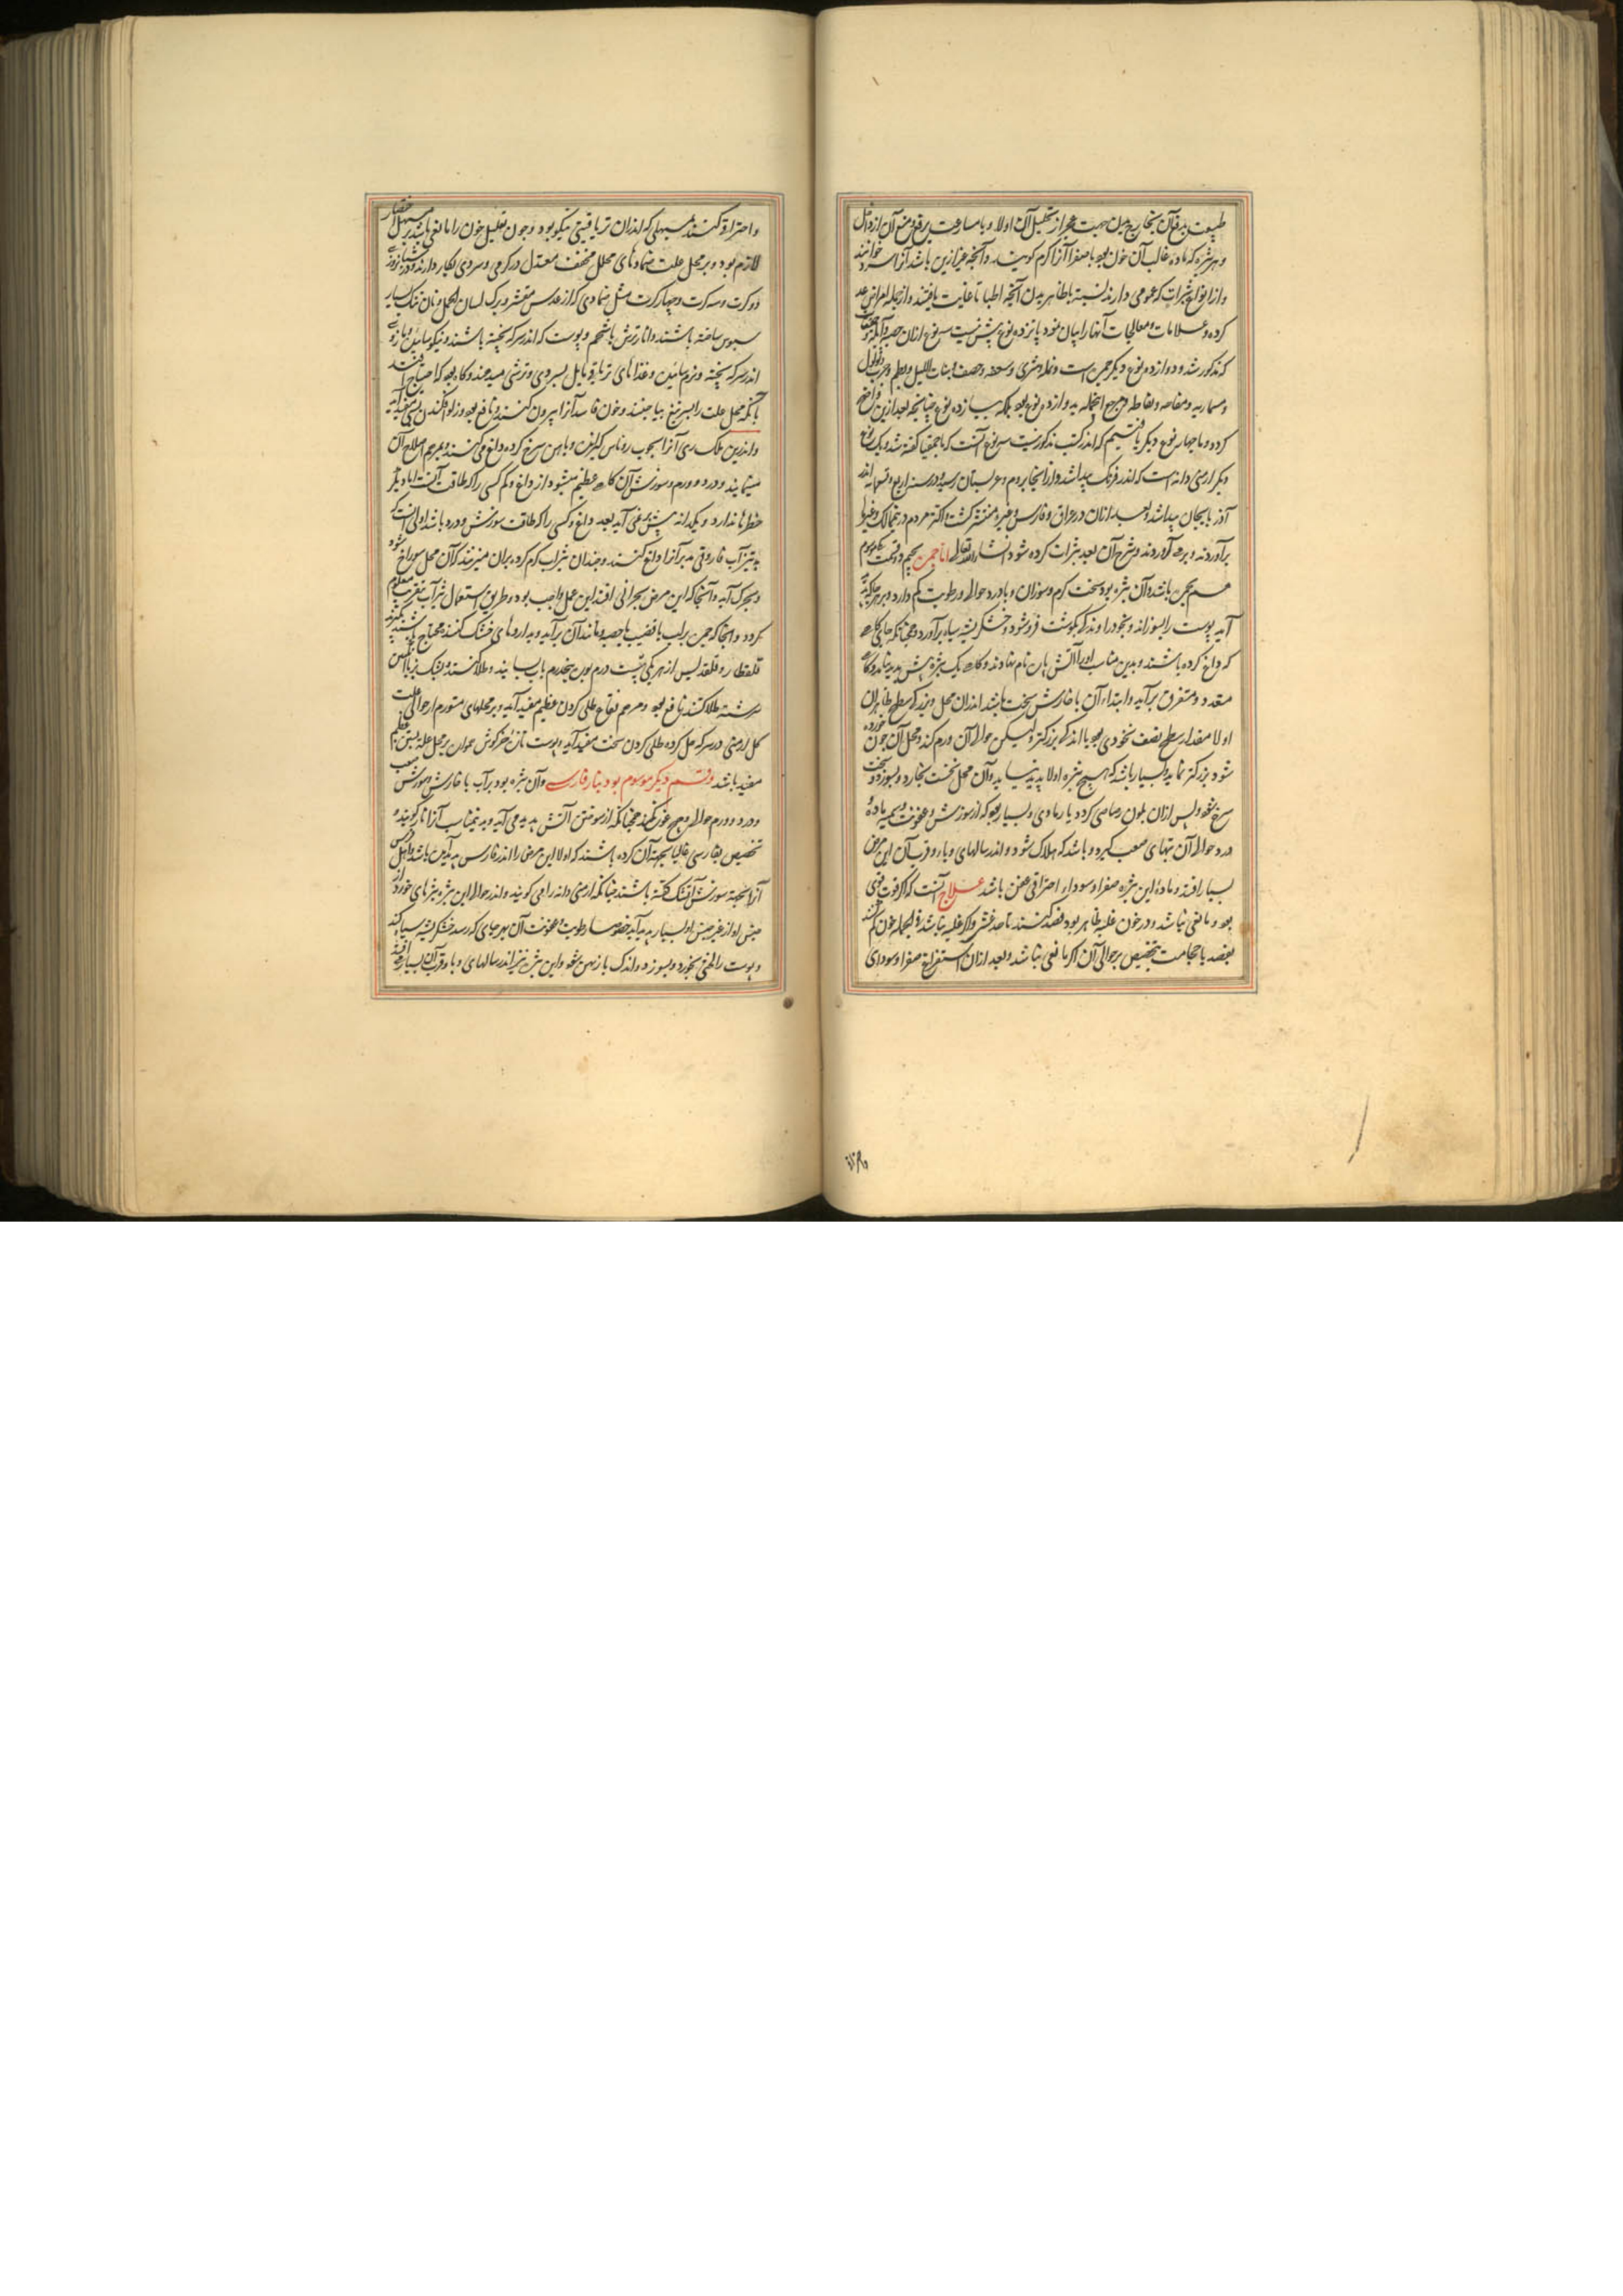 طبیعت بدفع آن بخارج بدن بجهت عجز از تحلیل آن اولا و با مسارعت بدفع و منع آن از داخل
و هر بثره که ماده غالب آن خون بود یا صفرا آنرا گرم گویند و آنچه غیر ازین باشد آنرا سرد خوانند
و از انواع بثرات که عمومی دارند نسبة با ظاهر بدن آنچه اطبا تا غایت یافتند و از جمله امراض عد
کرده و علامات و معالجات آنها را بیان نمود پانزده نوع بیش نیست سه نوع ازان حصبه و آبله و حمیقا
که مذکور شد و دوازده نوع دیگر جمره است و نمله و شری و سعفه و حصف و بنات اللیل و بطم و جرب و ثولول
و مسماریه و نفاطه و مرجع اینجمله به دوازده نوع بود بلکه بسیازده نوع چنانچه بعد ازین واضح
کرده و ما چهار نوع دیگر یافتیم که اندر کتب مذکور نیست سه نوع آنست که با حمیقا گفته شد و یک نوع
دیگر ارمنی دانه است که اندر فرنگ پیدا شد و از آنجا بروم و عربستان رسید و در سنه اربع و تسعمایه اندر
آذربایجان پیدا شد و بعد ازان در عراق و فارس و غیره منتشر گشت و اکثر مردم در ممالک و غیرها
برآوردند و برمی آوردند و شرح آن بعد بثرات کرده شود انشاء الله تعالی اما جمره بجیم دو قسمت یکی موسوم
هم بجمره باشد و آن بثره بود سخت گرم و سوزان و با درد حوالی و رطوبت کم دارد و بر هر جا که پدید
آید پوست را بسوزاند و بخود را وندکی بگوشت فرو شود و خشکریشه سیاه برآورد همچنانکه جائی گاهی
که داغ کرده باشند و بدین مناسب او را آتش پان نام نهادند و گاهی یک بثره بیش پدید نیاید و گاهی
متعدد و متفرق برآید و ابتداء آن با خارش سخت باشد اندران محل و بزرگی سطح ظاهر آن
اولا مقدار سطح نصف نخودی بود یا اندکی بزرگتر و لیکن حوالی آن ورم کند و محل آن چون خورده
شود بزرگتر نماید و بسیار باشد که هیچ بثره اولا پدید نیاید و آن محل نخست بخارد و بسوزد و سخت
سرخ شود پس ازان بلون رصاصی گردد یا رمادی و بسیار بود که از سوزش و عفونت و سمیه ماده
درد حوالی آن تبهای صعب گیرد و باشد که هلاک شود و اندر سالهای وبا و قرب آن این مرض
بسیار افتد و ماده این بثره صفرا و سوداء احتراقی عفن باشد علاج آنست که اگر قوت قوی
بود و مانعی نباشد و در خون غلبه ظاهر بود فصد کنند تا حد غشی و اگر غلبه نباشد فی الجمله خون کم کنند
بفصد یا حجامت بتخصیص بر حوالی آن اگر مانعی نباشد و بعد ازان استفراغ صفرا و سودای
واحتراق کنند بمسهلی که اندران تریاقیتی نیکو بود و چون تقلیل خون را مانعی باشد بر مسهل اختصار
لازم بود و بر محل علت ضمادهای محلل مخفف معتدل در گرمی و سردی بکار دارند و در شبانروزی
دو کرت و سه کرت و چهار کرت مثل ضمادی که از عدس مقشر و برگ لسان الحمل و نان خشک بسیار
سبوس ساخته باشند و انار ترش با شحم و پوست که اندر سرکه پخته باشند و نیکو سائیده و مازوی
اندر سرکه پخته و نرم سائیده و غذاهای تریاقی مایل بسردی و ترشی میدهند و گاه بود که احتیاج افتد
بانکه محل علت را بسر تیغ بیاجینند و خون فاسد آنرا بیرون کنند و نافع بود و زلو افکندن بسی مفید آید
و اندرین ملک ری آنرا بچوب روناس گیلزی و باهن سرخ کرده داغ می کنند و بمرهم اصلاح آن
مینمایند و درد و ورم و سوزش آن گاهی عظیم میشود از داغ و کم کسی را که طاقت آنست اما دیگر
خطرها ندارد و یکدانه بیش برنمی آید بعد داغ و کسی را که طاقت سوزش و درد باشد اولی آنست که
به تیزآب فاروقی مدبر آنرا داغ کنند و چندان تیزاب گرم کرده بران میریزند که آن محل سوراغ شود
و بچرک آید و آنجا که این مرض بحرانی افتد این عمل واجب بود و طریق استعمال تیزآب بتقریب معلوم
گردد و آنجا که جمره بر لب یا قضیب یا خصیه و مانند آن برآید و بداروهای خشک کننده محتاج باشند بگیرند
قلقطار و قلقدیس از هر یکی بیست درم بوره پنجدرم باب بسایند و طلا کنند و پشک بز با انگبین
سرشته طلا کنند نافع بود و مرهم فقاع طلی کردن عظیم مفید آید و بر محلهای متورم از حوالی علت
گل ارمنی در سرکه حل کرده طلی کردن سخت مفید آید و پوست تازه خرگوش جوان بر محل علة بستن عظیم
مفید باشد وقسم دیگر موسوم بود بنار فارسی وآن بثره بود پر آب با خارش و سوزش صعب
و درد و ورم حوالی هیچ غور نکند همچنانکه از سوختن آتش پدید می آید و بدین مناسب آنرا نار گویند و
تخصیص بفارسی غالبا بجهة آن کرده باشند که اولا این مرض را اندر فارس پدید آمده باشد و اهل فرس
آنرا بجهة سوزش آتشک گفته باشند چنانکه ارمنی دانه را می گویند و اندر حوالی این بثره بثرهای خورد از
جنس او و از غیر جنس او بسیار پدید آید خصوصا رطوبت و عفونت آن بهر جای که رسد خشکریشه سیاه کند
و پوست را لختی بخورد و بسوزد و اندک باز پهن شود و این بثره نیز اندر سالهای وبا و قرب آن بسیار افتد